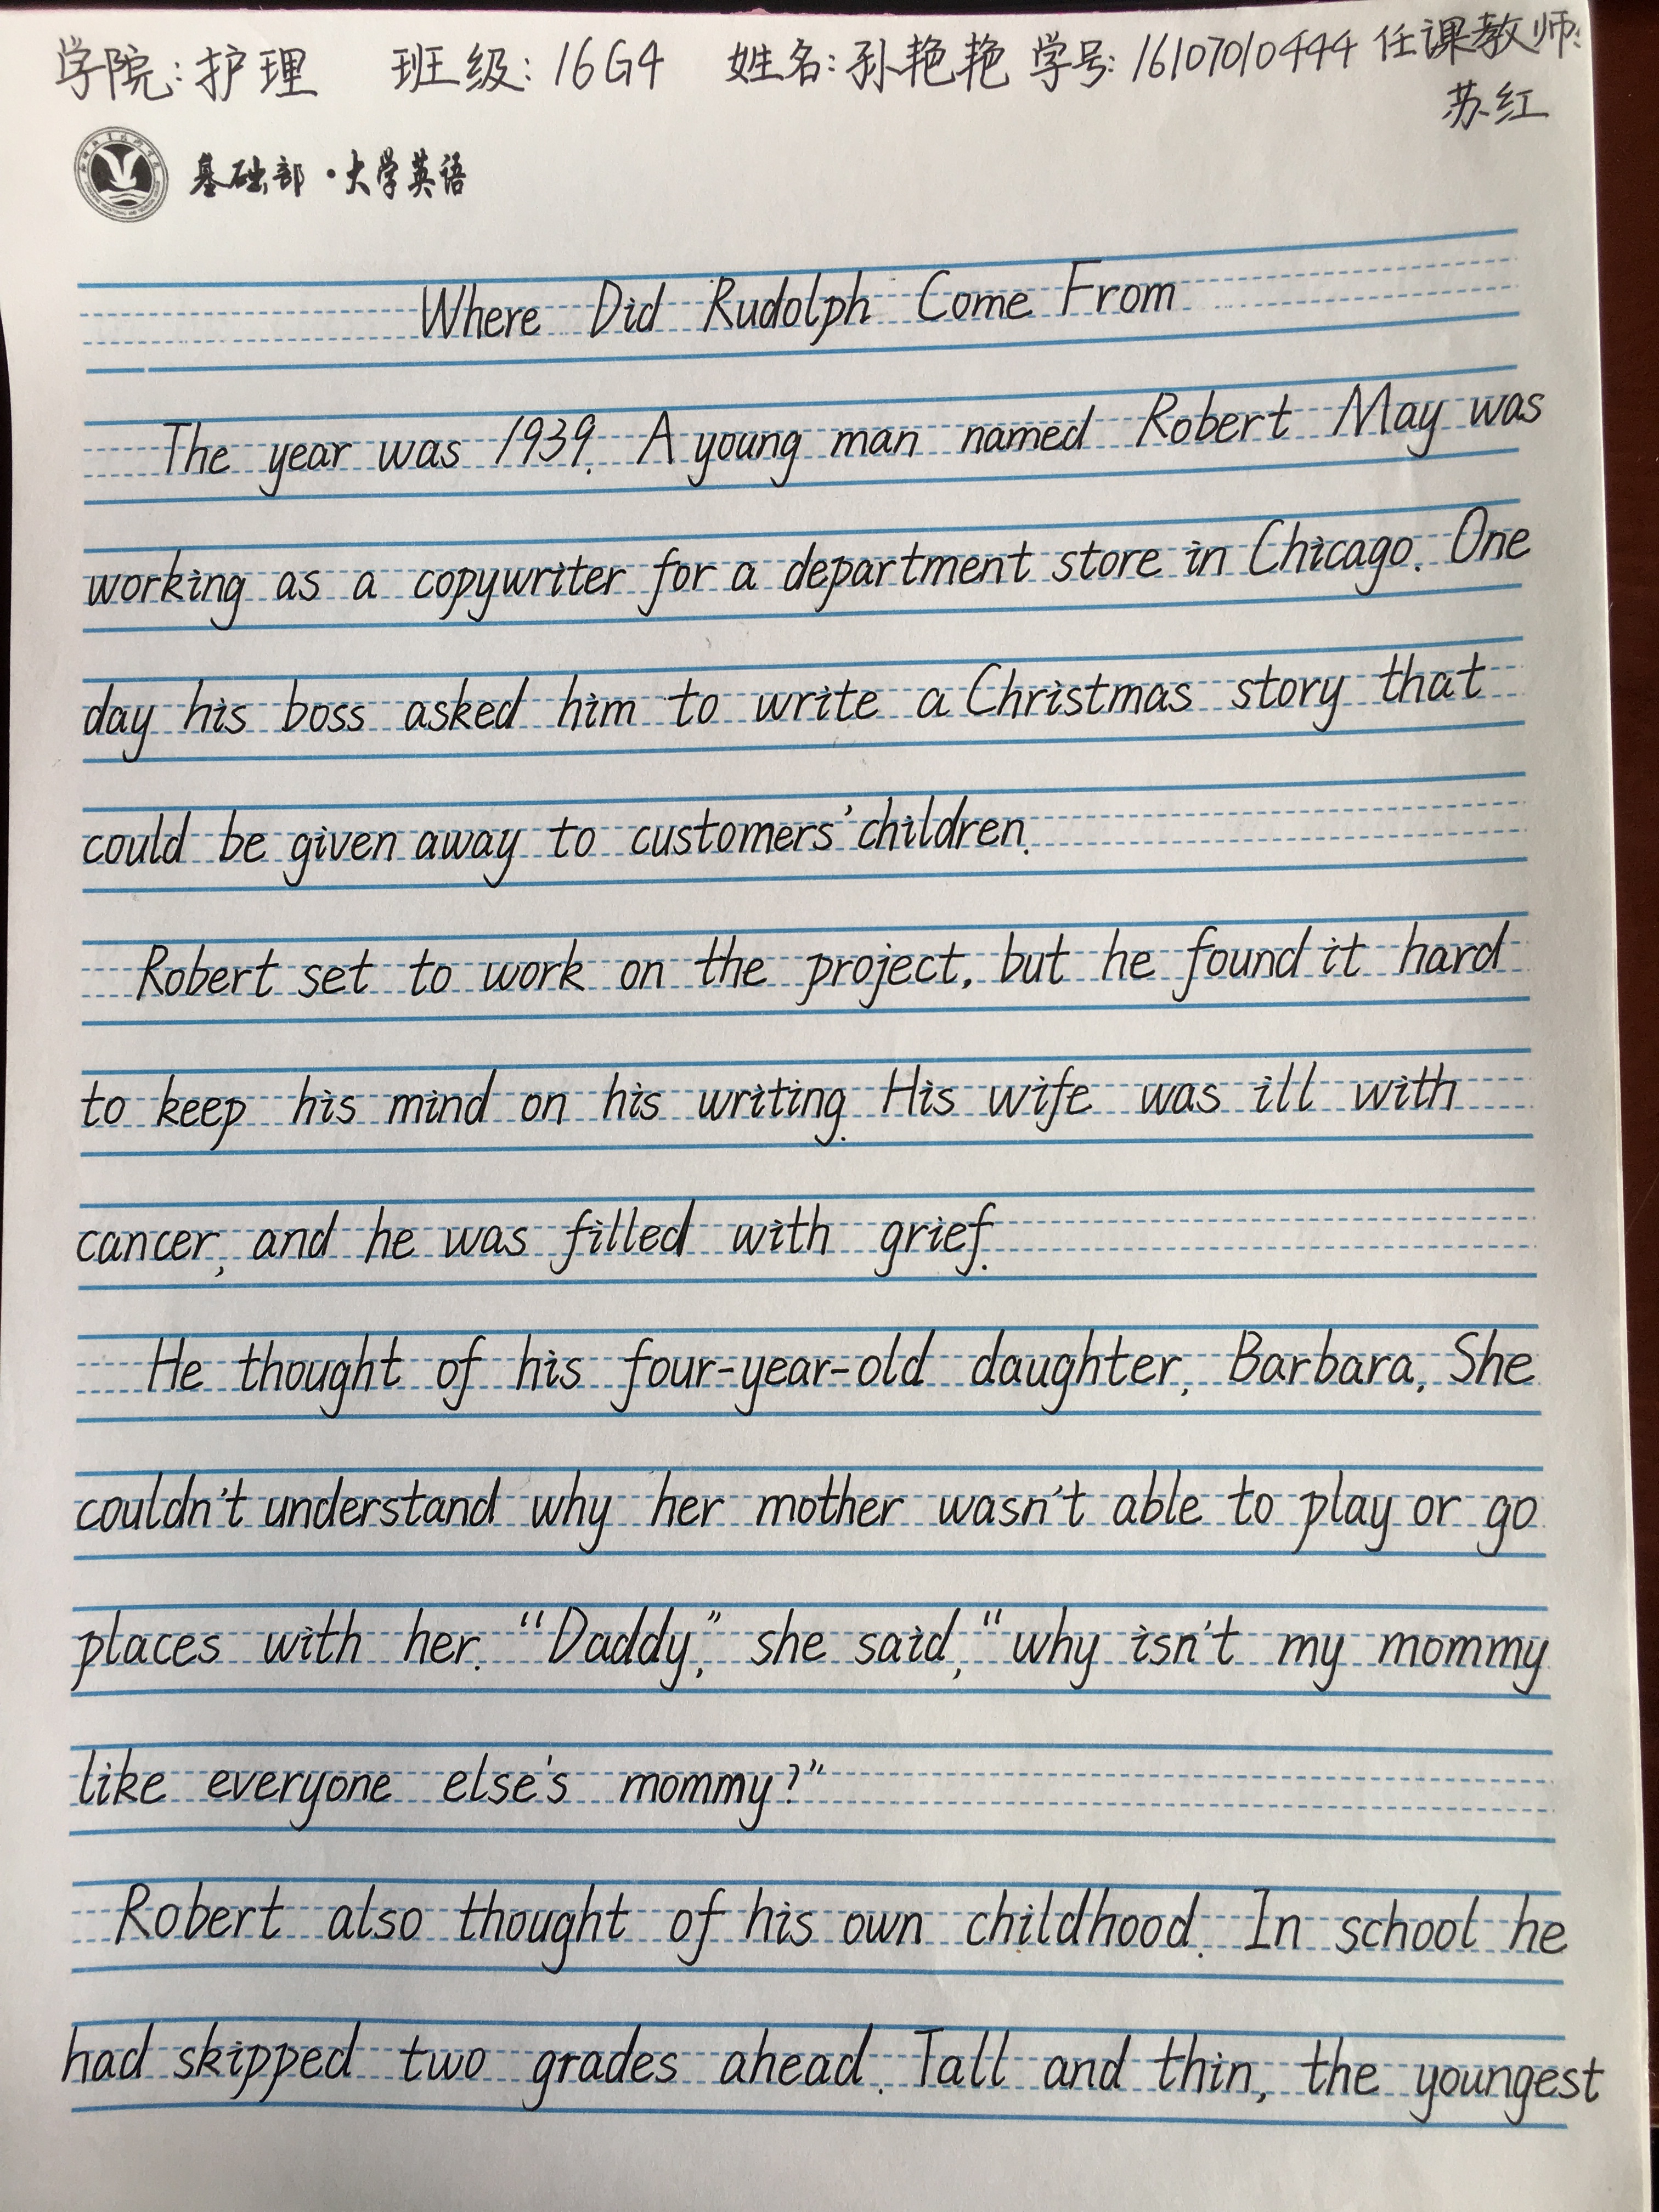 学院:护理 班级:16G4 姓名:孙艳艳 学号:16107010444 任课教师:
苏红
基础部·大学英语
Where Did Rudolph Come From
The year was 1939. A young man named Robert May was
working as a copywriter for a department store in Chicago. One
day his boss asked him to write a Christmas story that
could be given away to customers' children.
Robert set to work on the project, but he found it hard
to keep his mind on his writing. His wife was ill with
cancer, and he was filled with grief.
He thought of his four-year-old daughter, Barbara. She
couldn't understand why her mother wasn't able to play or go
places with her. "Daddy," she said, "why isn't my mommy
like everyone else's mommy?"
Robert also thought of his own childhood. In school he
had skipped two grades ahead. Tall and thin, the youngest